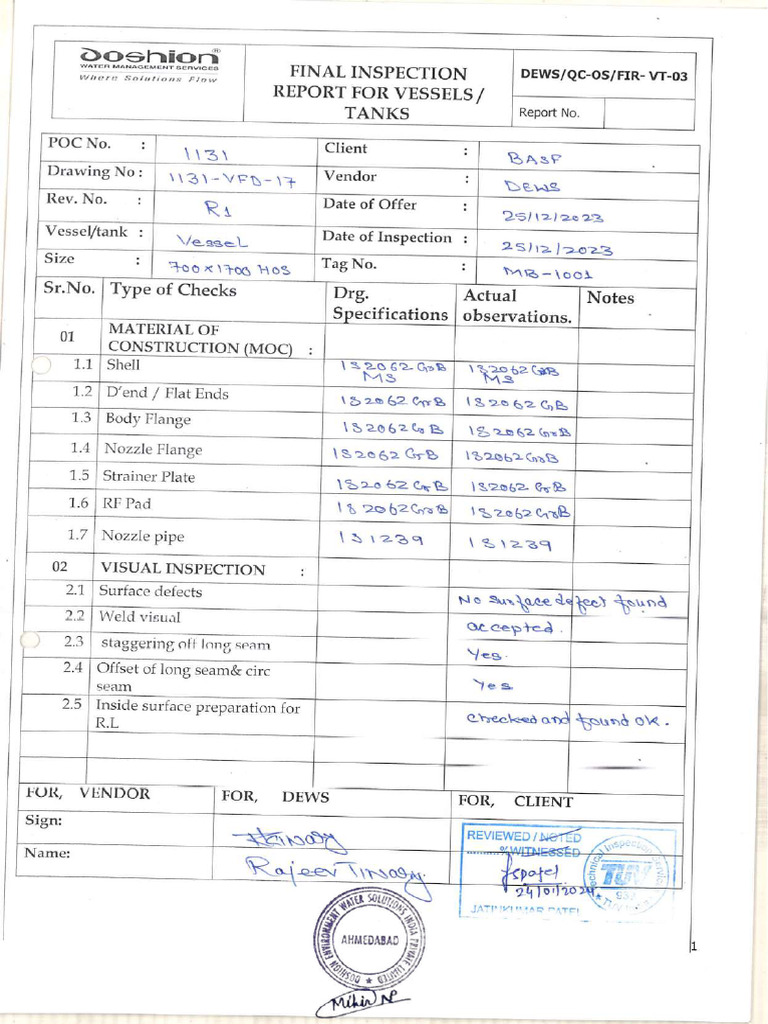 Doshion®
WATER MANAGEMENT SERVICES
Where Solutions Flow
FINAL INSPECTION
REPORT FOR VESSELS /
TANKS
DEWS/QC-OS/FIR- VT-03
Report No.
POC No. : 1131 Client : BASF
Drawing No : 1131-VFD-17 Vendor : DEWS
Rev. No. : R1 Date of Offer : 25/12/2023
Vessel/tank : Vessel Date of Inspection : 25/12/2023
Size : 700x1700 HOS Tag No. : MB-1001
Sr.No. Type of Checks Drg. Specifications Actual observations. Notes
01 MATERIAL OF CONSTRUCTION (MOC) :
1.1 Shell IS2062 GrB MS IS2062 GrB MS
1.2 D'end / Flat Ends IS2062 GrB IS2062 GB
1.3 Body Flange IS2062 GrB IS2062 GrB
1.4 Nozzle Flange IS2062 GrB IS2062 GrB
1.5 Strainer Plate IS2062 GrB IS2062 GrB
1.6 RF Pad IS2062 GrB IS2062 GrB
1.7 Nozzle pipe IS1239 IS1239
02 VISUAL INSPECTION :
2.1 Surface defects No surface defect found
2.2 Weld visual accepted.
2.3 staggering off long seam Yes.
2.4 Offset of long seam& circ seam Yes
2.5 Inside surface preparation for R.L checked and found ok.
FOR, VENDOR FOR, DEWS FOR, CLIENT
Sign:
Name: Rajeev Tiwary
REVIEWED / NOTED
........% WITNESSED
jspatel
24/01/2024
JATINKUMAR PATEL
Technical Inspection Service
TUV
937
DOSHION ENVIRONMENT WATER SOLUTIONS INDIA PRIVATE LIMITED
AHMEDABAD
Mihir
1